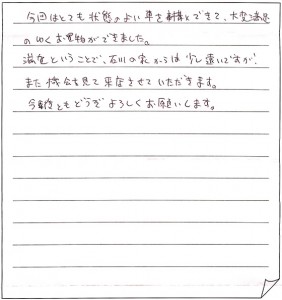 今回はとても状態のよい車を購入できて、大変満足
のゆくお買物ができました。
ということで、石川の家からは少し遠いですが、
また機会を見て来店させていただきます。
今後ともどうぞよろしくお願いします。